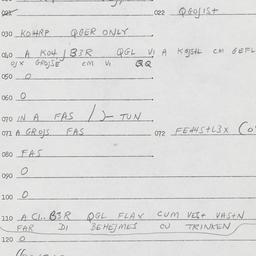 022 QGOJIS+
030 KO4RP QGER ONLY
040 A KO4 / B3R QGL VI A KOJS+L CM GEFL
OJX GROJSE CM VI QQ
050 O
060 O
070 IN A FAS / }- TUN
071 A GROJS FAS 072 FE44S+L3X (O
080 FAS
090 O
100 O
110 A CI.. B3R QGL FLAX CUM VES+ VAS+N
FAR DI BEHEJMES CU TRINKEN
120 O